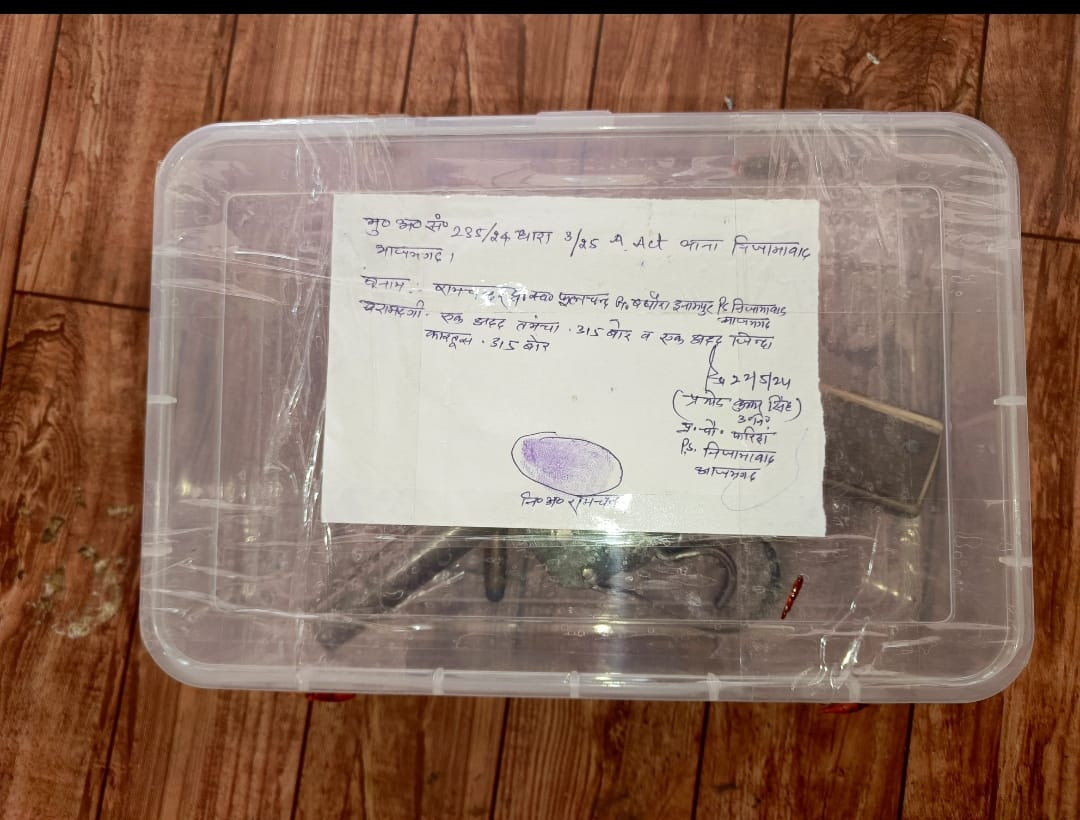 मु० अ० सं० 235/24 धारा 3/25 A. Act थाना निजामाबाद
आजमगढ़।
बनाम: रामचन्दर S/o स्व० फूलचन्द नि० इनामपुर P.S निजामाबाद
आजमगढ़
बरामदगी. एक अदद तमंचा .315 बोर व एक अदद जिन्दा
कारतूस .315 बोर
22/5/24
(प्रमोद कुमार सिंह)
उ०नि०
प्र. चौ. फरिहां
P.S. निजामाबाद
आजमगढ़
नि०अ० रामचन्दर